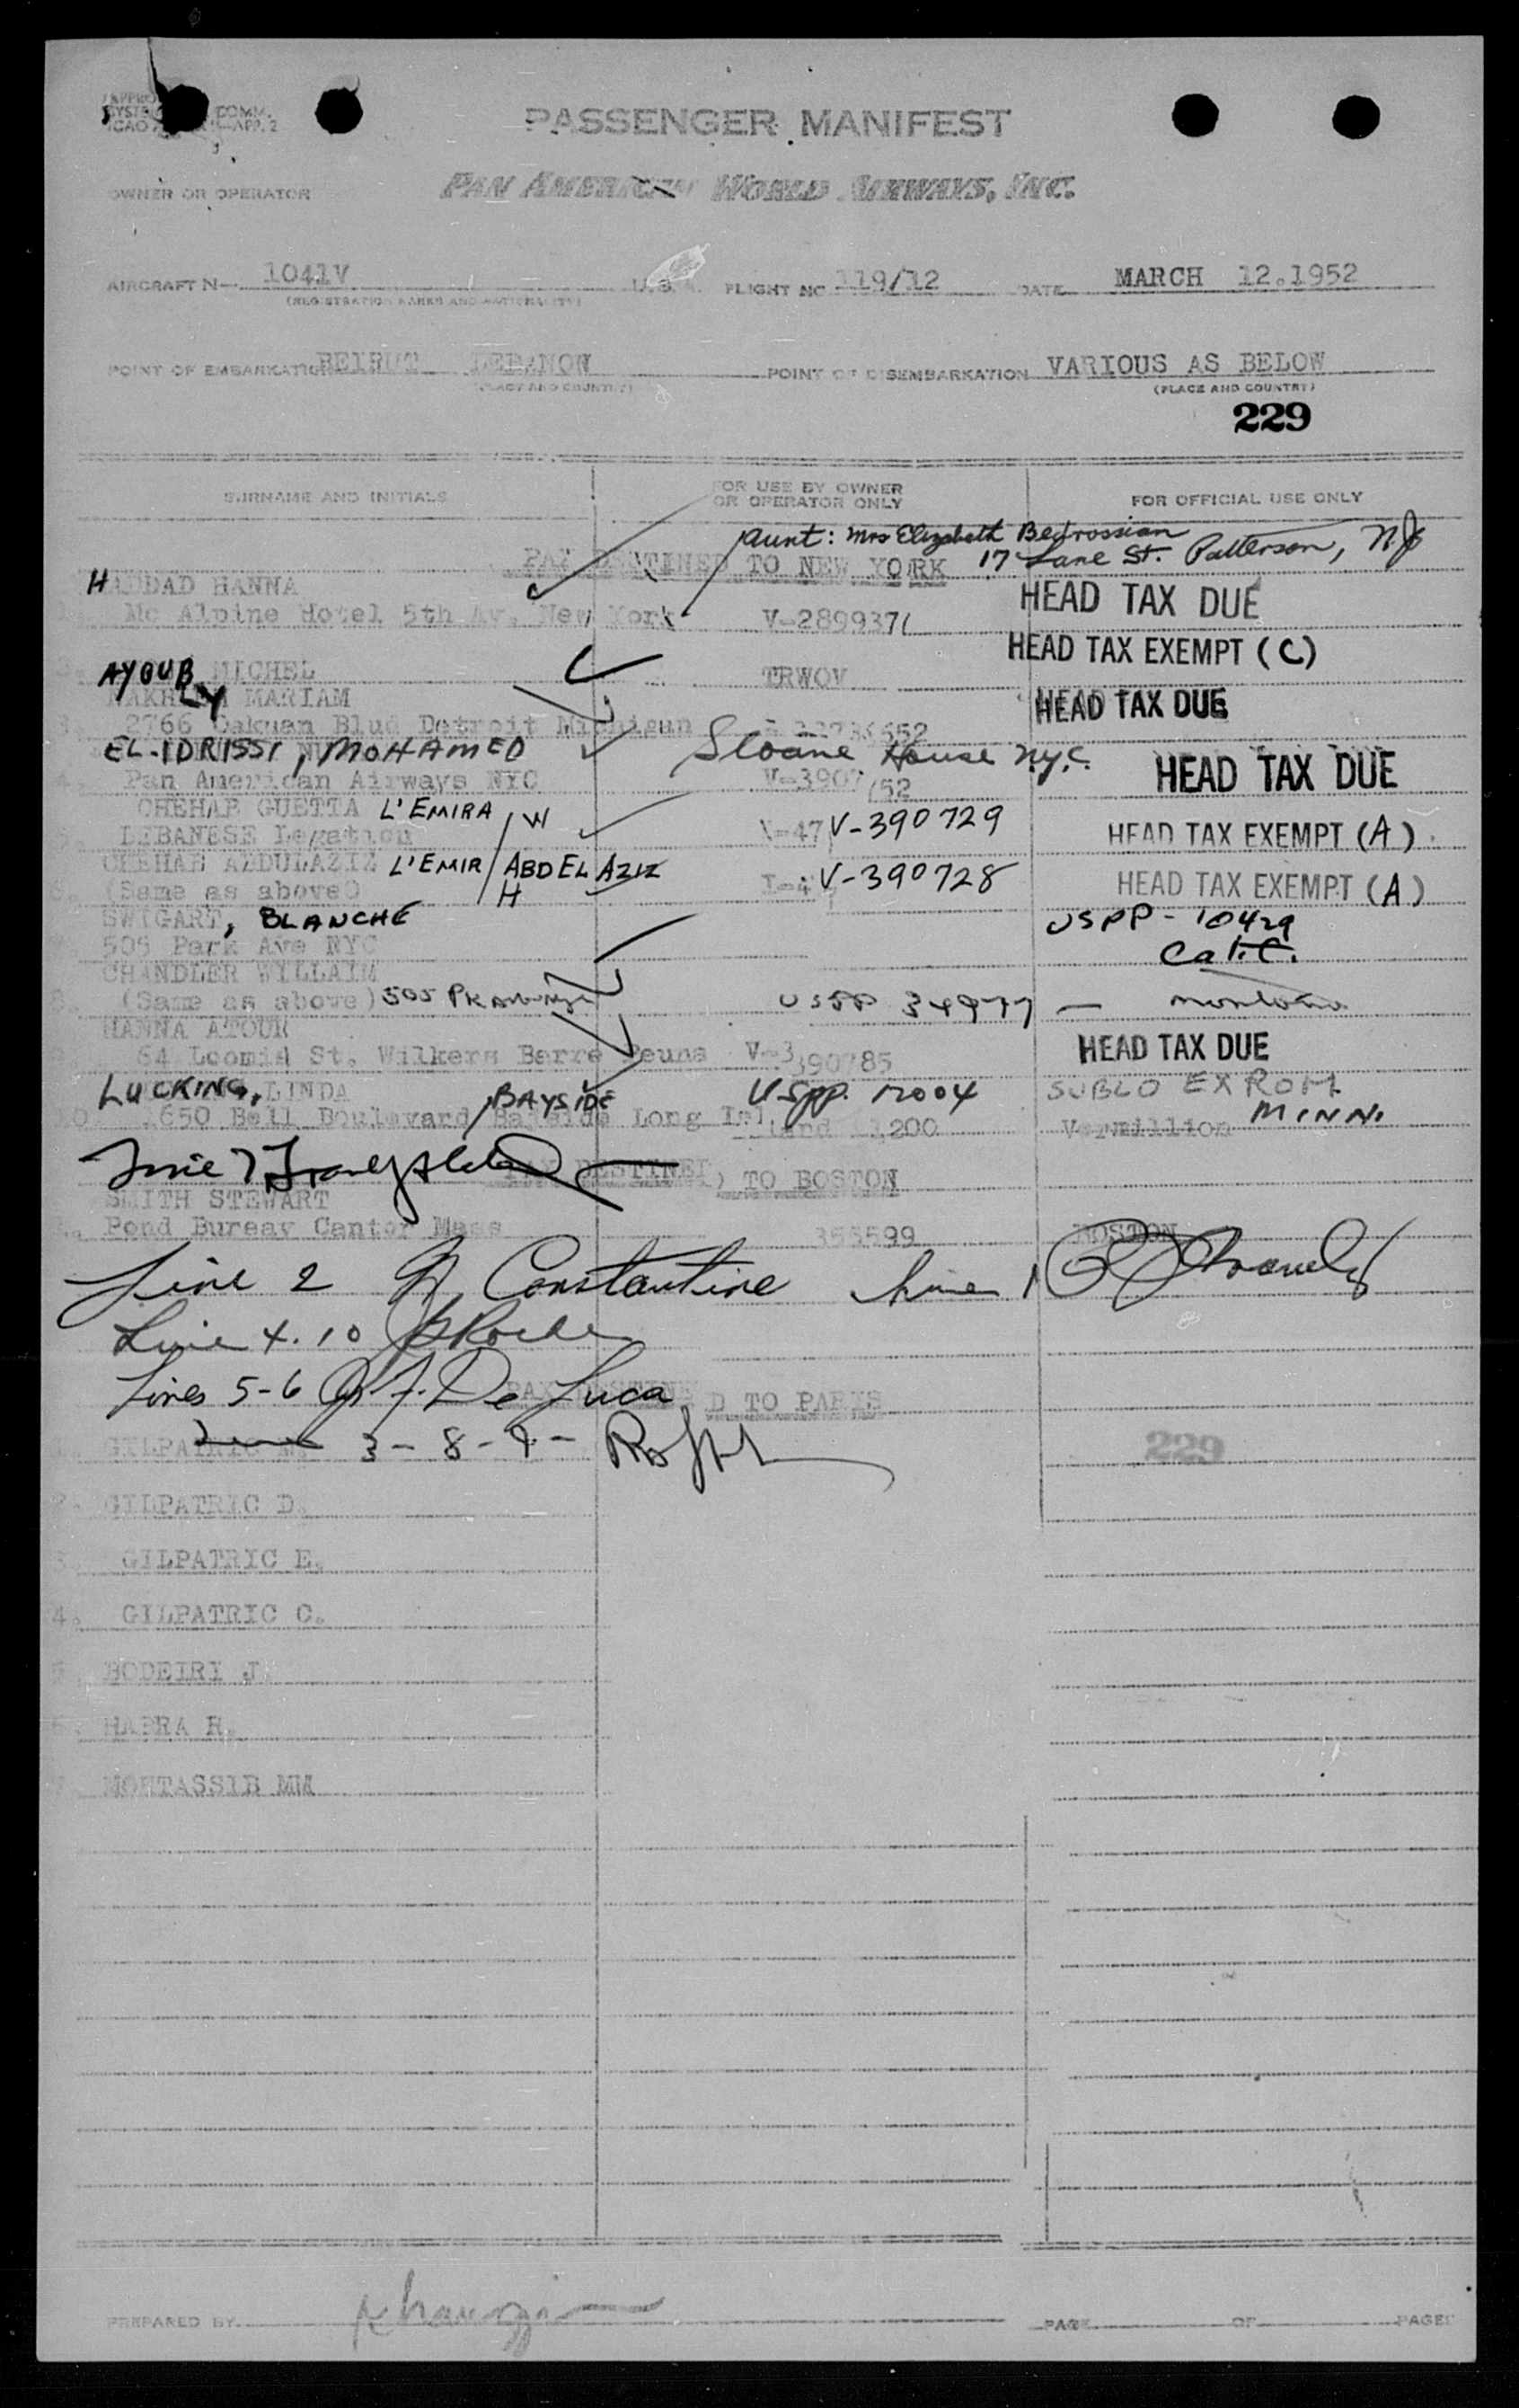 PASSENGER MANIFEST
OWNER OR OPERATOR PAN AMERICAN WORLD AIRWAYS, INC.
AIRCRAFT N— 1041V U.S. FLIGHT NO 119/12 DATE MARCH 12.1952
(REGISTRATION MARKS AND NATIONALITY)
POINT OF EMBARKATION BEIRUT LEBANON POINT OF DISEMBARKATION VARIOUS AS BELOW
(PLACE AND COUNTRY) (PLACE AND COUNTRY)
229
SURNAME AND INITIALS FOR USE BY OWNER OR OPERATOR ONLY FOR OFFICIAL USE ONLY
Aunt: Mrs Elizabeth Bedrossian
17 Lane St. Patterson, NJ
PAX DESTINED TO NEW YORK
HADDAD HANNA HEAD TAX DUE
Mc Alpine Hotel 5th Av. New York V-2899371
HEAD TAX EXEMPT (C)
AYOUB MICHEL TRWOV
MARIAM HEAD TAX DUE
3. 2766 Oakuan Blud Detroit Michigan
EL-IDRISSI, MOHAMED Sloane House N.Y.C. HEAD TAX DUE
4. Pan American Airways NYC V-3907/52
CHEHAB GUETTA L'EMIRA / W
LEBANESE Legation V-390729 HEAD TAX EXEMPT (A)
CHEHAB ABDULAZIZ L'EMIR / ABDEL AZIZ
H
6. (Same as above) V-390728 HEAD TAX EXEMPT (A)
SWIGART, BLANCHE USPP - 10429
505 Park Ave NYC Calif.
CHANDLER WILLAIM
8. (Same as above) 505 Pk Av USPP 34977 — Montana
HANNA ATOUR HEAD TAX DUE
64 Loomis St. Wilkers Berre Peuna V-3390785
LUCKING, LINDA USPP. 12004
10. 1650 Bell Boulevard, BAYSIDE Long Isl 1200 Vermillion MINN.
PAX DESTINED TO BOSTON
SMITH STEWART
Pond Bureay Cantor Mass 355599 BOSTON
Line 2 Constantine Line 1
Line 4. 10 Roche
Lines 5-6 De Luca
PAX DESTINED TO PARIS
3 - 8 - 9 -
GILPATRIC 229
2. GILPATRIC D.
3. GILPATRIC E.
4. GILPATRIC C.
5. BODEIRI J.
6. HABRA R.
7. MOHTASSIB MM
PREPARED BY PAGE OF PAGES